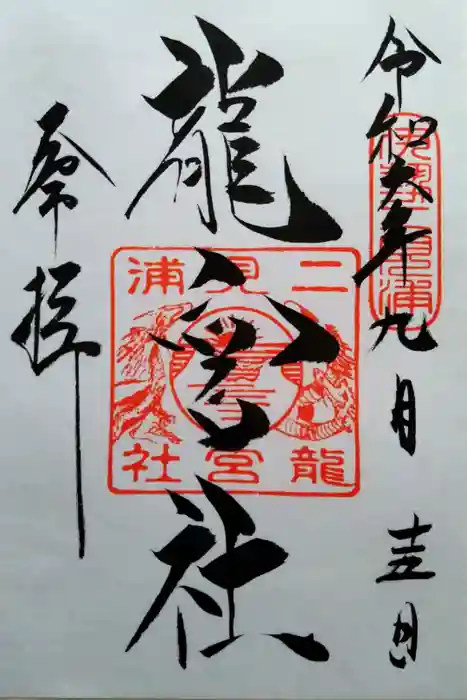 令和六年九月十五日
伊勢二見浦
龍宮社
二見浦
龍宮社
奉拝